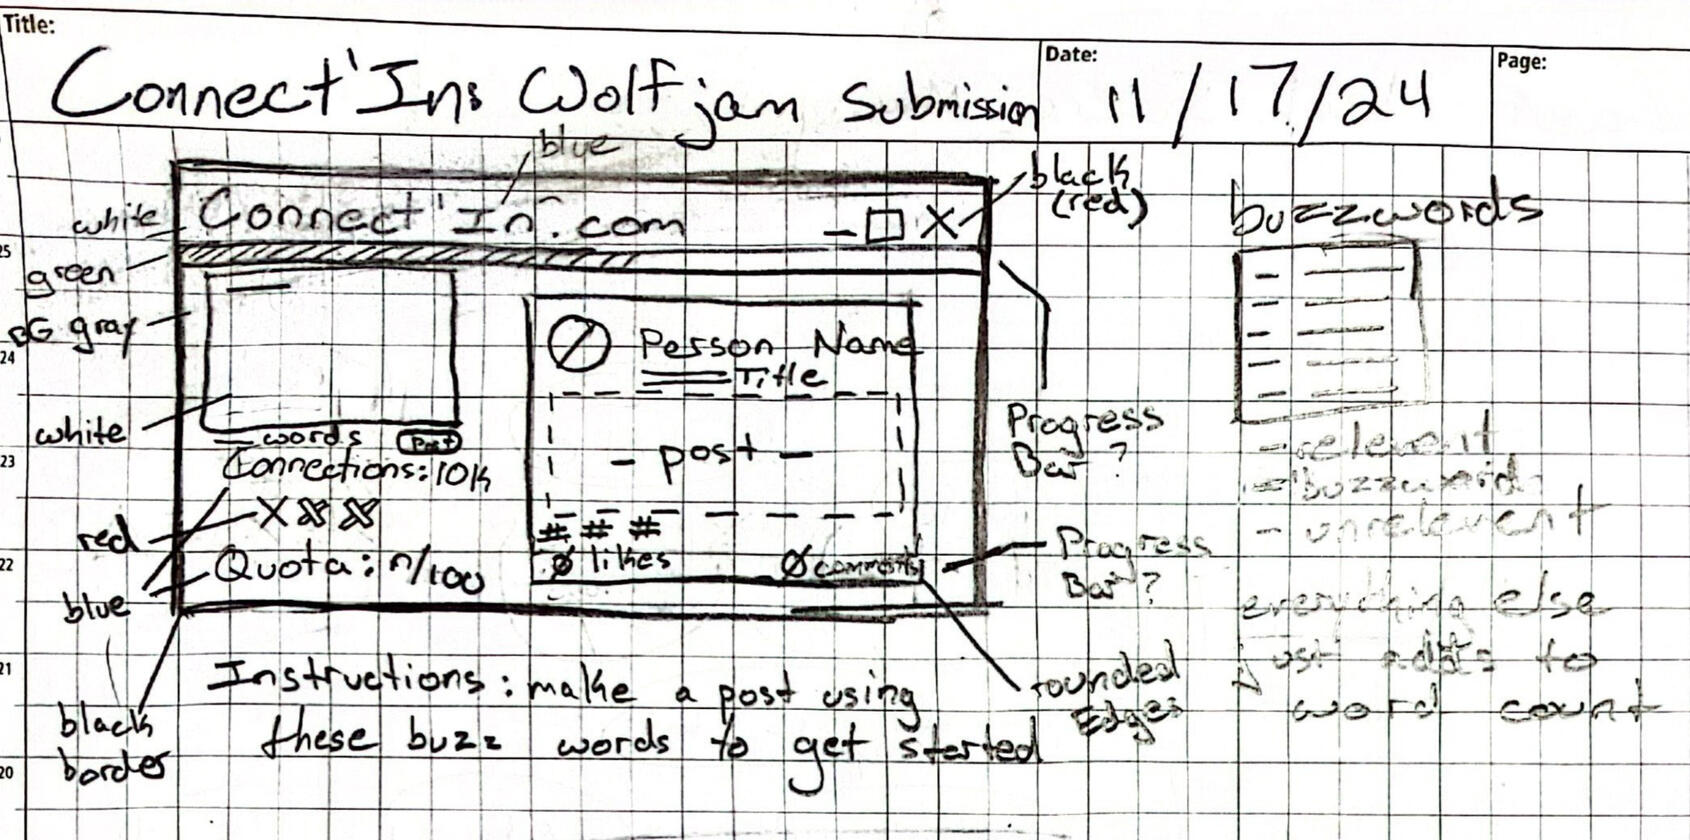 Title:
Connect'Ins Wolfjam Submission
Date:
11/17/24
Page:
blue
black
(red)
white
Connect'In.com
_ □ X
buzzwords
25
green
BG gray
24
Person Name
Title
white
words
Post
- post -
Progress
Bar?
23
Connections: 10K
- relevent
- buzzword
- unrelevent
red
X X X
# # #
22
Quota: n/100
Ø likes
Ø comments
Progress
Bar?
blue
everything else
just adds to
word count
21
Instructions: make a post using
these buzz words to get started
rounded
Edges
black
border
20